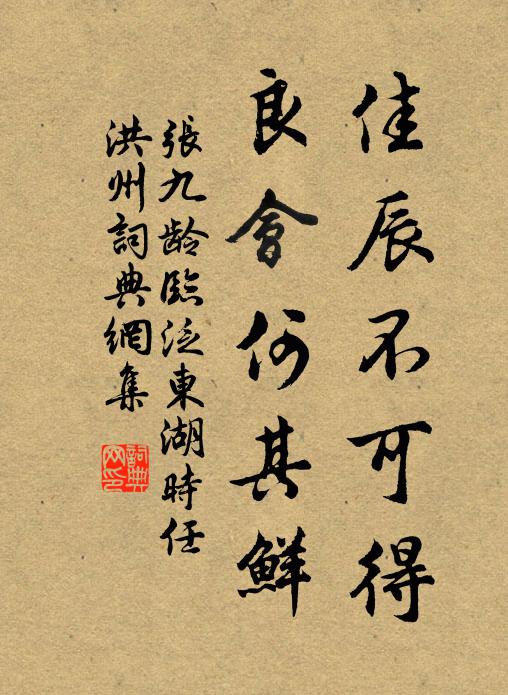 佳辰不可得
良會何其鮮
張九齡臨泛東湖時任
洪州詞典網集
詞典
网印